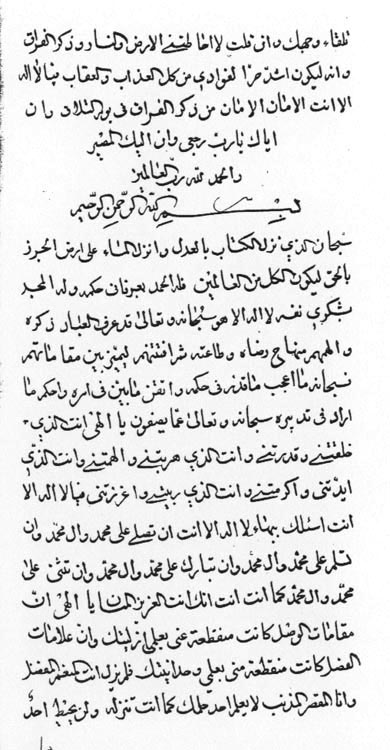 تلقاء وجهك وان قلت لا اخا طبتنى الارض والسماء وذكر الفراق
وانه ليكون اشد حرا لفوادى من كل العذاب والعقاب فيا لا اله
الا انت الامان الامان من ذكر الفراق فى يوم التلاق وان
اياك يا رب رجعى وان اليك المصير
والحمد لله رب العالمين
بسم الله الرحمن الرحيم
سبحان الذى نزل الكتاب بالعدل وانزل الماء على ارض الجرز
بالحق ليكون الكل من العالمين فله الحمد بعرفان حكمه وله المجد
بشكرى نفسه لا اله الا هو سبحانه وتعالى قد عرف العباد ذكره
والهمهم منهاج رضاه وطاعته شرافتهم ليميز بين مقاماتهم
فسبحانه ما اعجب ما قدر فى حكمه واتقن ما بين فى امره واحكم ما
اراد فى تدبيره سبحانه وتعالى عما يصفون يا الهى انت الذى
خلقتنى وقدرتنى وانت الذى هديتنى والهمتنى وانت الذى
ايدتنى واكرمتنى وانت الذى ربيتنى واعززتنى فيا لا اله الا
انت اسئلك ببهاء لا اله الا انت ان تصلى على محمد وال محمد وان
تسلم على محمد وال محمد وان تبارك على محمد وال محمد وان تثنى على
محمد وال محمد كما انت انت انك انت العزيز المنان يا الهى ان
مقامات الوصل كانت منقطعة عنى بعلمى ازليتك وان علامات
الفضل كانت منقطعة منى بعلمى وحدانيتك فلم يزل انت المنعم المفضل
وانا المقصر المذنب لا يعلم احد حلمك كما انت تنزله ولن يحيط احد